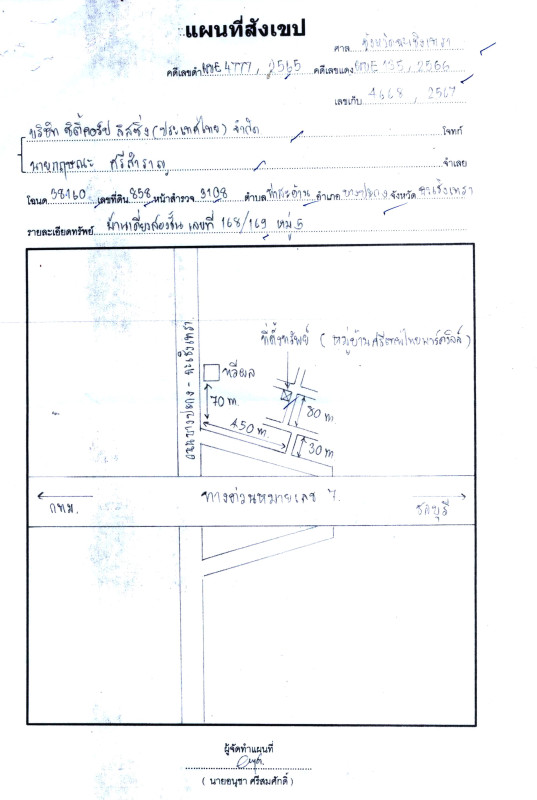 แผนที่สังเขป
ศาล จังหวัดฉะเชิงเทรา
คดีเลขดำ ผบE4777, 2565 คดีเลขแดง ผบE195, 2566
เลขเก็บ 4668, 2567
บริษัท ซิตี้คอร์ป ลิสซิ่ง (ประเทศไทย) จำกัด โจทก์
นายกฤษณะ ศรีสำราญ จำเลย
โฉนด 58160 เลขที่ดิน 858 หน้าสำรวจ 3108 ตำบล ท่าสะอ้าน อำเภอ บางปะกง จังหวัด ฉะเชิงเทรา
รายละเอียดทรัพย์ บ้านเดี่ยวสองชั้น เลขที่ 168/169 หมู่ 5
ที่ตั้งทรัพย์ (หมู่บ้านศรีเทพไทยพาร์ควิลล์)
ถนนบางปะกง - ฉะเชิงเทรา
ทวีผล
70 m.
80 m.
450 m.
30 m
กทม.
ทางด่วนหมายเลข 7.
ชลบุรี
ผู้จัดทำแผนที่
( นายอนุชา ศรีสมศักดิ์ )